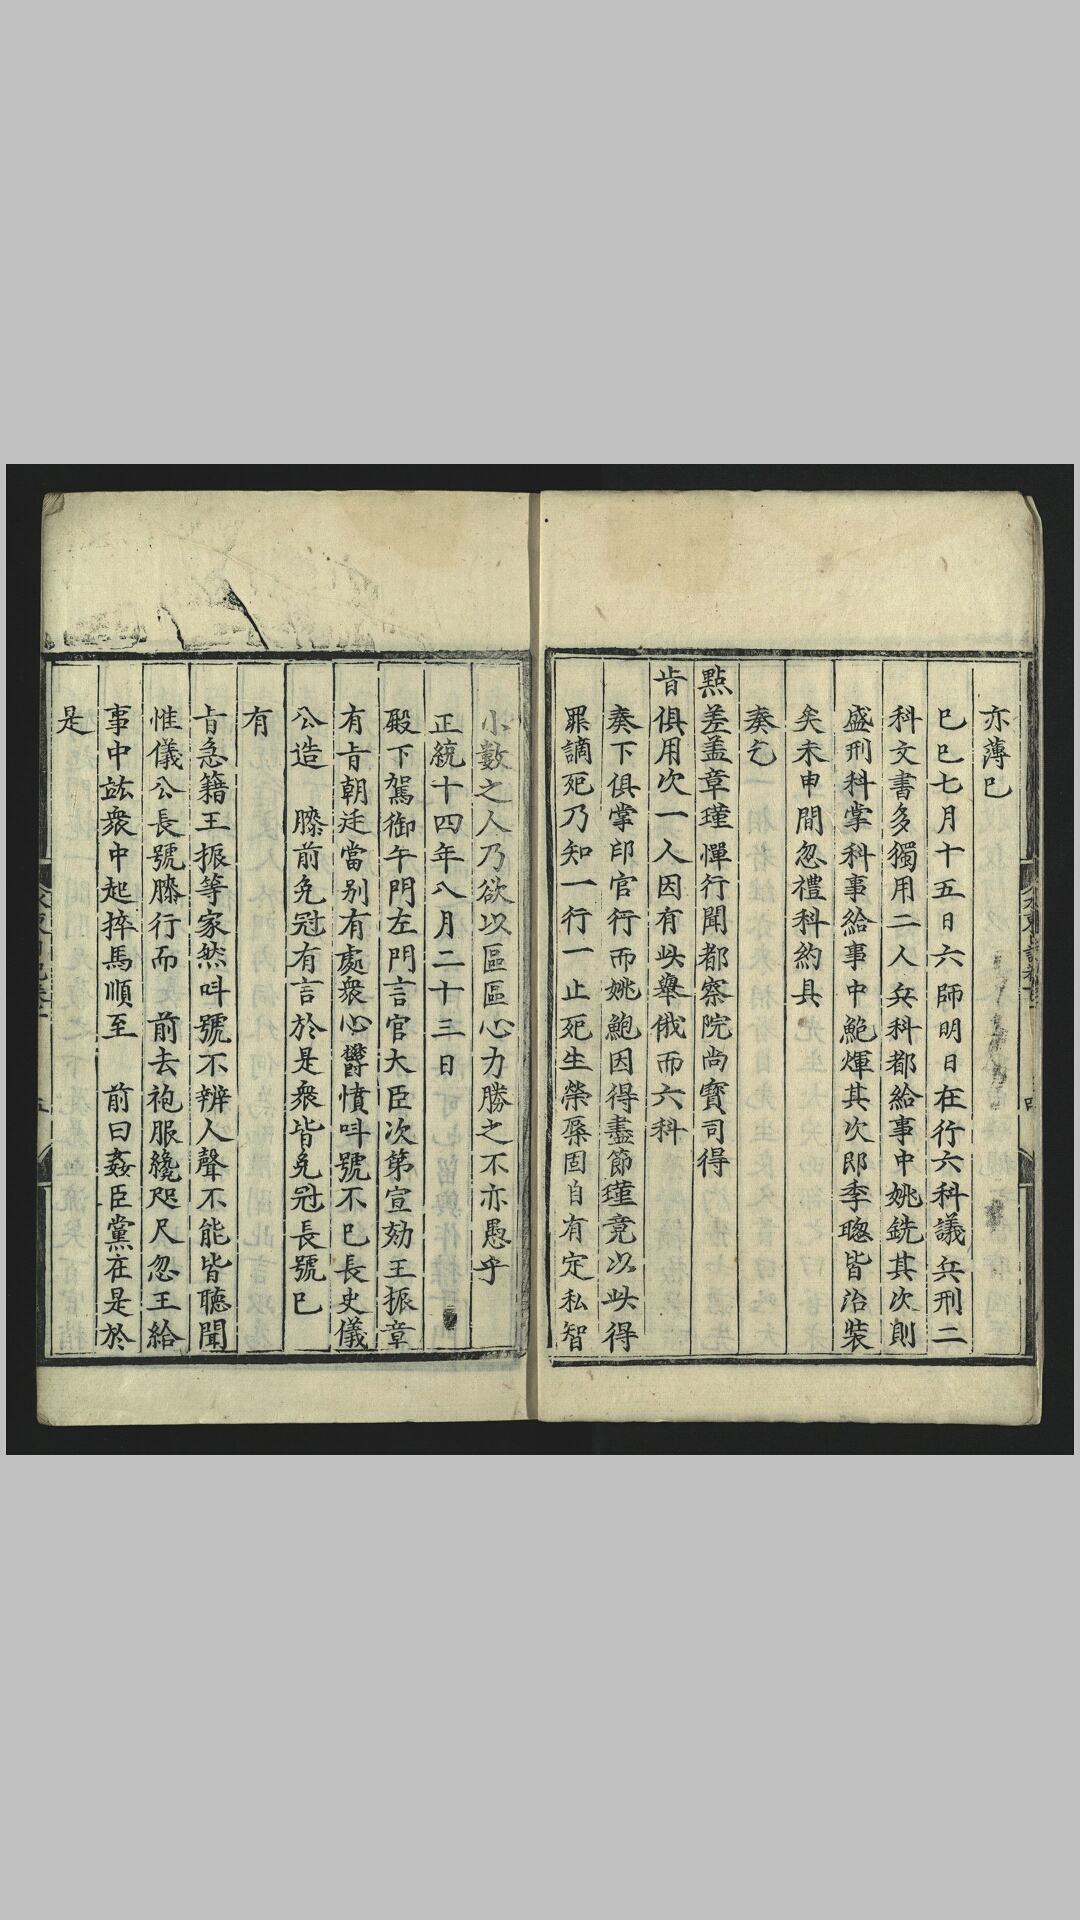 亦薄巳
巳巳七月十五日六師明日在行六科議兵刑二
科文書多獨用二人兵科都給事中姚銑其次則
盛刑科掌科事給事中鮑煇其次郎季聰皆治裝
矣未申間忽禮科約具
奏乞
點差盖章瑾憚行聞都察院尚寳司得
㫖俱用次一人因有此舉俄而六科
奏下俱掌印官行而姚鮑因得盡節瑾竟以此得
罪謫死乃知一行一止死生榮辱固自有定私智
小數之人乃欲以區區心力勝之不亦愚乎
正統十四年八月二十三日
殿下駕御午門左門言官大臣次第宣劾王振章
有㫖朝廷當别有處衆心欝憤呌號不巳長史儀
公造 膝前免冠有言於是衆皆免冠長號巳
有
㫖急籍王振等家然呌號不辨人聲不能皆聴聞
惟儀公長號膝行而 前去袍服纔咫尺忽王給
事中竑衆中起捽馬順至 前曰姦臣黨在是於
是